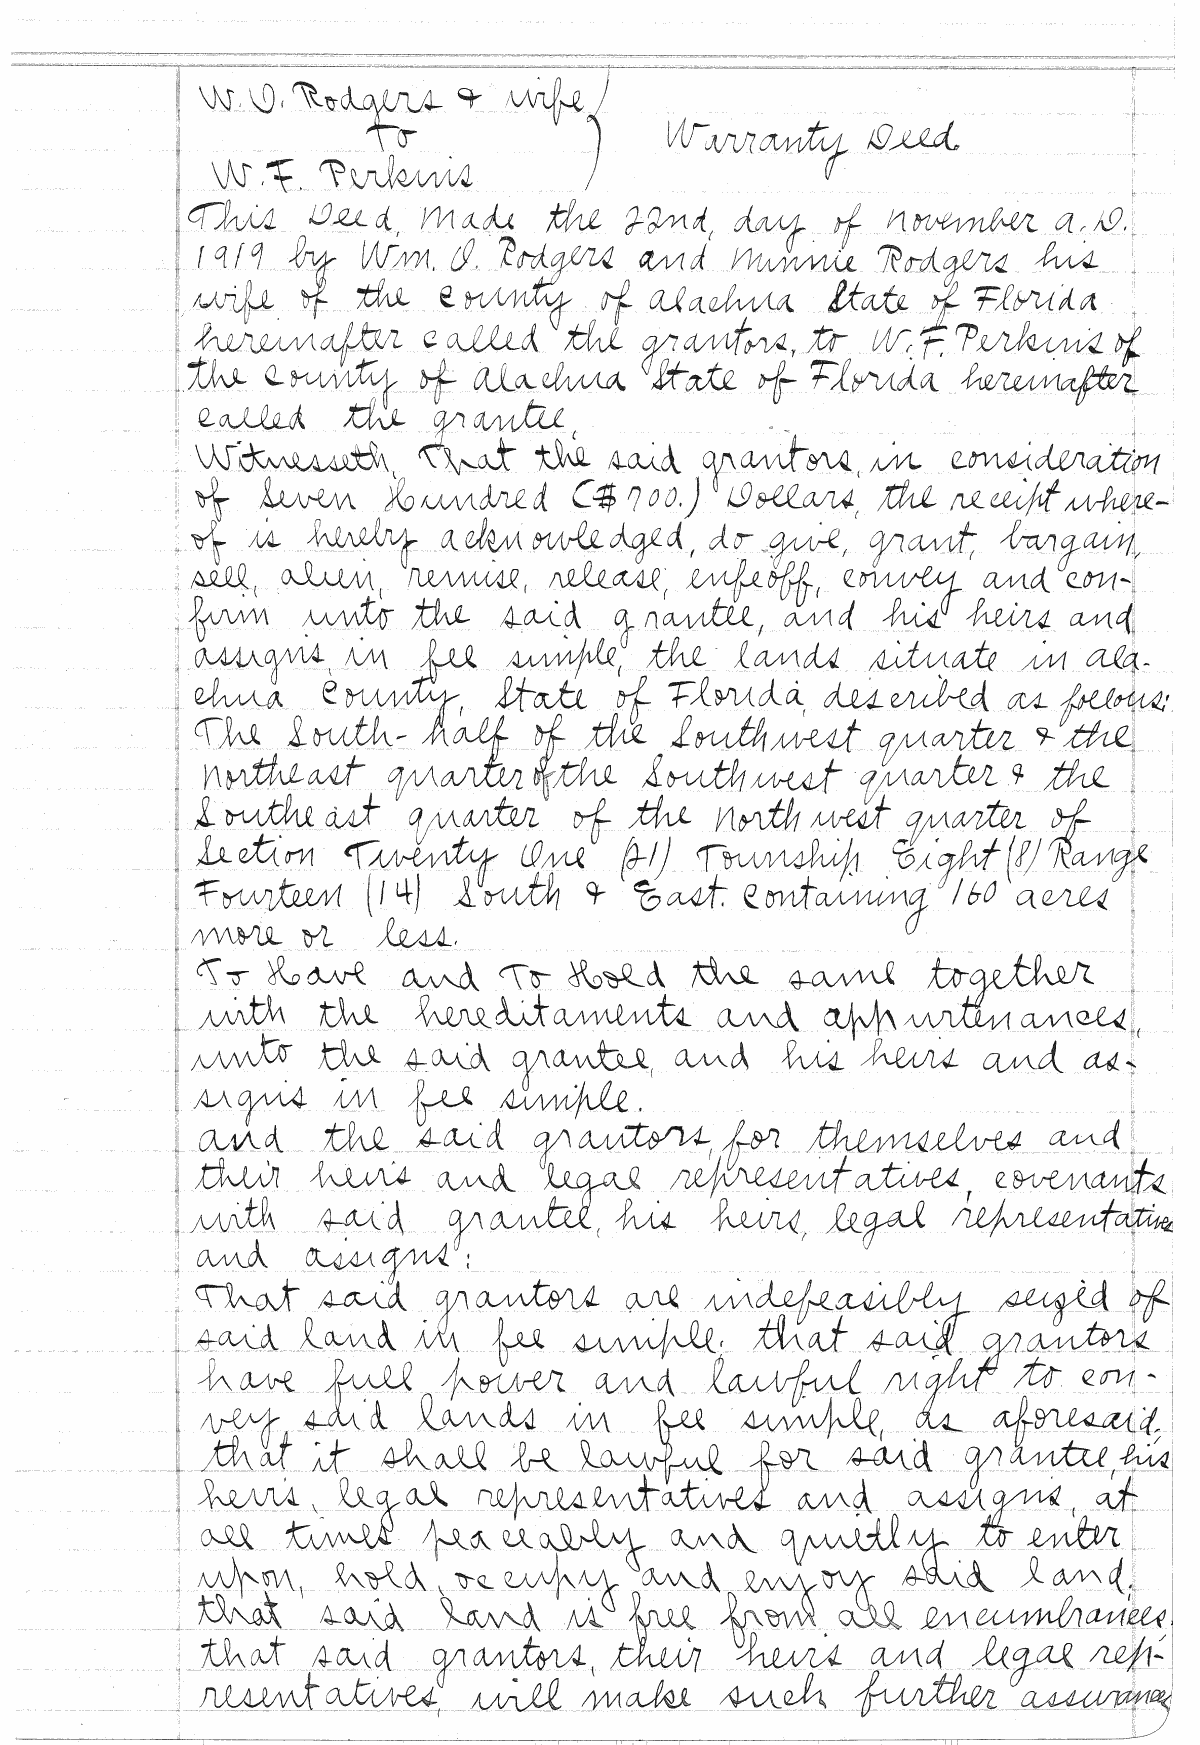 W. O. Rodgers & wife
to
Warranty Deed
W. F. Perkins
This Deed, Made the 22nd, day of November A.D.
1919 by Wm. O. Rodgers and Minnie Rodgers his
wife of the County of Alachua State of Florida
hereinafter called the grantors, to W. F. Perkins of
the County of Alachua State of Florida hereinafter
called the grantee,
Witnesseth, That the said grantors, in consideration
of Seven Hundred ($700.) Dollars, the receipt where-
of is hereby acknowledged, do give, grant, bargain,
sell, alien, remise, release, enfeoff, convey and con-
firm unto the said grantee, and his heirs and
assigns, in fee simple, the lands situate in Ala-
chua County, State of Florida, described as follows:
The South-half of the Southwest quarter & the
Northeast quarter of the Southwest quarter & the
Southeast quarter of the Northwest quarter of
Section Twenty One (21) Township Eight (8) Range
Fourteen (14) South & East. Containing 160 acres
more or less.
To Have and To Hold the same together
with the hereditaments and appurtenances,
unto the said grantee, and his heirs and as-
signs in fee simple.
And the said grantors, for themselves and
their heirs and legal representatives, covenants
with said grantee, his heirs, legal representatives
and assigns:
That said grantors are indefeasibly seized of
said land in fee simple; that said grantors
have full power and lawful right to con-
vey said lands in fee simple, as aforesaid;
that it shall be lawful for said grantee, his
heirs, legal representatives and assigns, at
all times peaceably and quietly to enter
upon, hold, occupy and enjoy said land;
that said land is free from all encumbrances;
that said grantors, their heirs and legal rep-
resentatives, will make such further assurances